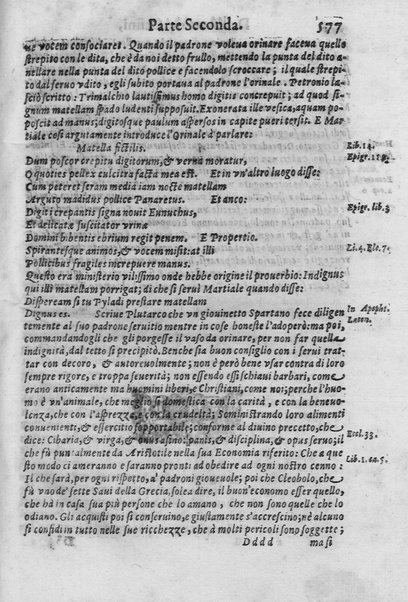 Parte Seconda. 577
ue votem consociares. Quando il padrone voleua orinare faceua quello
strepito con le dita, che è da noi detto frullo, mettendo la punta del dito a-
nellare nella punta del dito pollice e facendolo scroccare; il quale strepi-
to dal seruo vdito, egli subito portaua al padrone l'orinale. Petronio la-
sciò scritto: Trimalchio lautissimus homo digitis contrepuit; ad quod si-
gnum matellam spado ludenti supposuit. Exonerata ille vesica, aquam po-
poscit ad manus; digitosque paulum aspersos in capite pueri tersit. E Mar
tiale così argutamente introduce l'Orinale à parlare:
Matella fictilis. Lib. 14.
Dum poscor crepitu digitorum, & verna moratur, Epigr. 119.
O quoties pellex culcitra facta mea est. Et in vn'altro luogo disse:
Cum peteret seram media iam nocte matellam
Arguto madidus pollice Panaretus. Et anco:
Digiti crepantis signa nouit Eunuchus, Epigr. lib. 3
Et delicatæ suscitator vrinæ
Domini bibentis ebrium regit penem. E Propertio.
Spirantesque animos, & vocem misit: at illi Li. 4. Ele. 7.
Pollicibus fragiles increpuere manus.
Questo era ministerio vilissimo onde hebbe origine il prouerbio: Indignus
qui illi matellam porrigat; di che si seruì Martiale quando disse:
Dispeream si tu Pyladi prestare matellam
Dignus es. Scriue Plutarco che vn giouinetto Spartano fece diligen In Apopht.
temente al suo padrone seruitio mentre in cose honeste l'adoperò: ma poi, Lacon.
commandandogli che gli porgesse il vaso da orinare, per non far quella
indignità, dal tetto si precipitò. Benche sia buon consiglio con i serui trat-
tar con decoro, & autoreuolmente; non è però bene vsar contra di loro
sempre rigore, e troppa seuerità; non essendo essi schiaui barbari, come
erano anticamente ma huomini liberi, e Christiani, come noi; perche l'huo-
mo è vn'animale, che meglio si domestica con la carità, e con la beneuo-
lenza, che con l'asprezza, e con la crudeltà; Somministrando loro alimenti
conuenienti, & essercitio sopportabile; conforme al diuino precetto, che
dice: Cibaria, & virga, & onus asino: panis, & disciplina, & opus seruo; il Eccl. 33.
che fù puntalmente da Aristotile nella sua Economia riferito: Che a que
sto modo ci ameranno e saranno pronti ad obedire ad ogni nostro cenno: Lib. 1. ca. 5.
Il che sarà, per ogni rispetto, a' padroni gioueuole; poi che Cleobolo, che
fù vno de' sette Saui della Grecia, solea dire, il buon'economo esser quello,
che hà in casa sua più persone che lo amano, che non sono quelle che lo
odiano. Gli acquisti poi si conseruino, e giustamente s'accreschino; nè alcuno
si confidi in tutto nelle sue ricchezze, che à molti pericoli sono soggette;
Dddd ma si